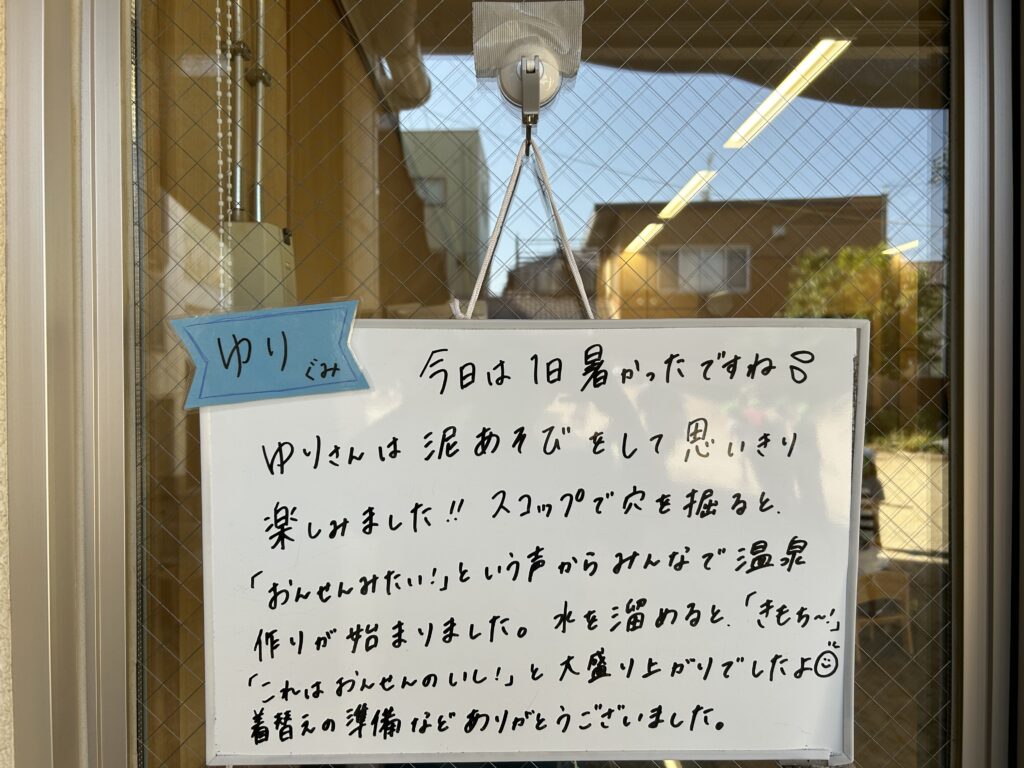 ゆりぐみ
今日は1日暑かったですね
ゆりさんは泥あそびをして思いきり
楽しみました!! スコップで穴を掘ると、
「おんせんみたい!」という声からみんなで温泉
作りが始まりました。水を溜めると、「きもち〜!」
「これはおんせんのいし!」と大盛り上がりでしたよ
着替えの準備などありがとうございました。